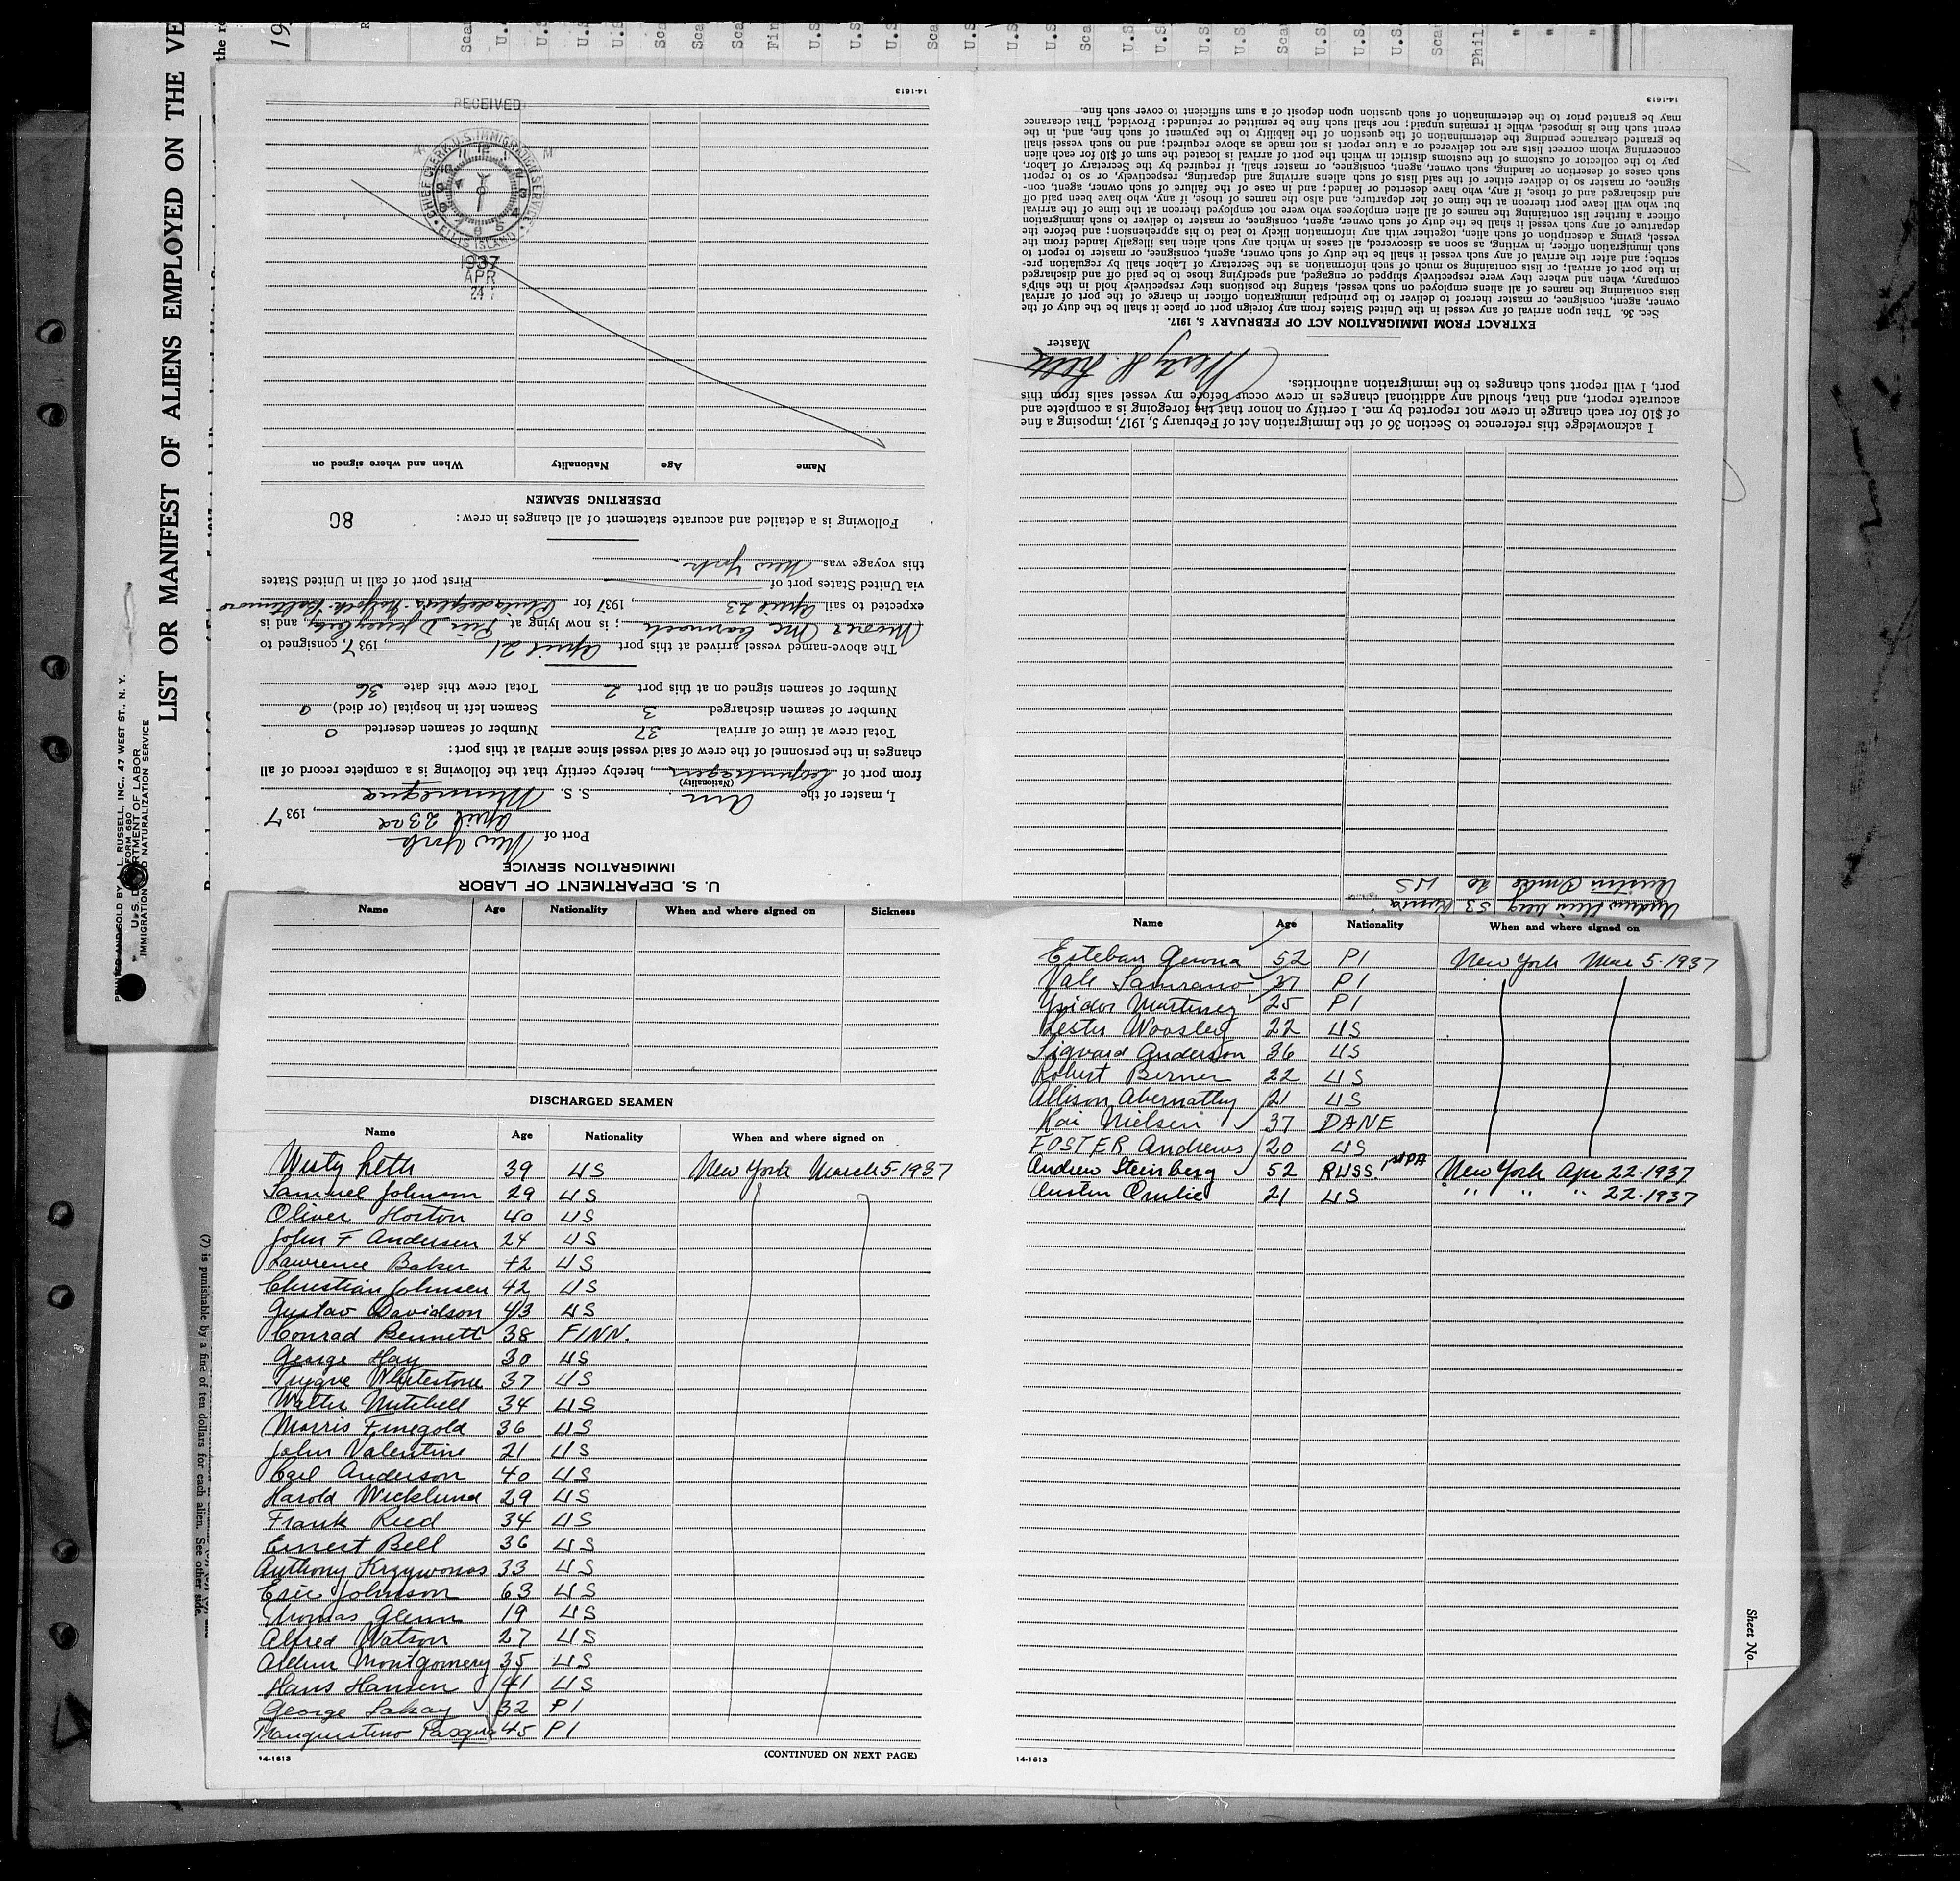 LIST OR MANIFEST OF ALIENS EMPLOYED ON THE VE
PRINTED AND SOLD BY L. RUSSELL, INC., 47 WEST ST., N. Y.
FORM 680
U. S. DEPARTMENT OF LABOR
IMMIGRATION AND NATURALIZATION SERVICE
the re
19
(7) is punishable by a fine of ten dollars for each alien. See other side.
Sheet No.
U. S. DEPARTMENT OF LABOR
IMMIGRATION SERVICE
Port of New York
April 23rd, 1937
I, master of the Am S. S. Minnequa
(Nationality)
from port of Copenhagen, hereby certify that the following is a complete record of all
changes in the personnel of the crew of said vessel since arrival at this port:
Total crew at time of arrival 37 Number of seamen deserted 0
Number of seamen discharged 3 Seamen left in hospital (or died) 0
Number of seamen signed on at this port 2 Total crew this date 36
The above-named vessel arrived at this port April 21, 1937, consigned to
Moore & McCormack; is now lying at Pier D Jersey City, and is
expected to sail April 23, 1937 for Philadelphia - Norfolk - Baltimore
via United States port of First port of call in United States
this voyage was New York
Following is a detailed and accurate statement of all changes in crew: 80
DESERTING SEAMEN
Name Age Nationality When and where signed on
RECEIVED
CHIEF CLERK U.S. IMMIGRATION SERVICE
ELLIS ISLAND
1937
APR
24
14-1613
Andrew Steinberg 53 Russia
Austin Omlie 20 US
I acknowledge this reference to Section 36 of the Immigration Act of February 5, 1917, imposing a fine
of $10 for each change in crew not reported by me. I certify on honor that the foregoing is a complete and
accurate report, and that, should any additional changes in crew occur before my vessel sails from this
port, I will report such changes to the immigration authorities.
Westy Leth
Master
EXTRACT FROM IMMIGRATION ACT OF FEBRUARY 5, 1917.
Sec. 36. That upon arrival of any vessel in the United States from any foreign port or place it shall be the duty of the
owner, agent, consignee, or master thereof to deliver to the principal immigration officer in charge of the port of arrival
lists containing the names of all aliens employed on such vessel, stating the positions they respectively hold in the ship's
company, when and where they were respectively shipped or engaged, and specifying those to be paid off and discharged
in the port of arrival; or lists containing so much of such information as the Secretary of Labor shall by regulation pre-
scribe; and after the arrival of any such vessel it shall be the duty of such owner, agent, consignee, or master to report to
such immigration officer, in writing, as soon as discovered, all cases in which any such alien has illegally landed from the
vessel, giving a description of such alien, together with any information likely to lead to his apprehension; and before the
departure of any such vessel it shall be the duty of such owner, agent, consignee, or master to deliver to such immigration
officer a further list containing the names of all alien employees who were not employed thereon at the time of the arrival
but who will leave port thereon at the time of her departure, and also the names of those, if any, who have been paid off
and discharged and of those, if any, who have deserted or landed; and in case of the failure of such owner, agent, con-
signee, or master so to deliver either of the said lists of such aliens arriving and departing, respectively, or so to report
such cases of desertion or landing, such owner, agent, consignee, or master shall, if required by the Secretary of Labor,
pay to the collector of customs of the customs district in which the port of arrival is located the sum of $10 for each alien
concerning whom correct lists are not delivered or a true report is not made as above required; and no such vessel shall
be granted clearance pending the determination of the question of the liability to the payment of such fine, and, in the
event such fine is imposed, while it remains unpaid; nor shall such fine be remitted or refunded; Provided, That clearance
may be granted prior to the determination of such question upon deposit of a sum sufficient to cover such fine.
14-1613
Name Age Nationality When and where signed on Sickness
DISCHARGED SEAMEN
Name Age Nationality When and where signed on
Westy Leth 39 US New York March 5-1937
Samuel Johnson 29 US
Oliver Horton 40 US
John F Andersen 24 US
Lawrence Baker 42 US
Christian Johnsen 42 US
Gustav Davidson 43 US
Conrad Bennett 38 FINN.
George Hay 30 US
Trygve Whitestone 37 US
Walter Mitchell 34 US
Morris Finegold 36 US
John Valentine 21 US
Carl Anderson 40 US
Harold Wicklund 29 US
Frank Reed 34 US
Ernest Bell 36 US
Anthony Krzywonos 33 US
Eric Johnson 63 US
Thomas Glenn 19 US
Alfred Watson 27 US
Arthur Montgomery 35 US
Hans Hansen 41 US
George Sakay 32 PI
Pasqua 45 PI
14-1613 (CONTINUED ON NEXT PAGE)
Name Age Nationality When and where signed on
Esteban Gerona 52 PI New York Mar 5-1937
Vale Samrano 37 PI
Ysidor Martinez 25 PI
Lester Woosley 22 US
Sigvard Anderson 36 US
Robert Berner 22 US
Allison Abernathy 21 US
Kai Nielsen 37 DANE
FOSTER Andrews 20 US
Andrew Steinberg 52 RUSS. 1st PA New York Apr 22-1937
Austin Omlie 21 US " " " 22-1937
14-1613